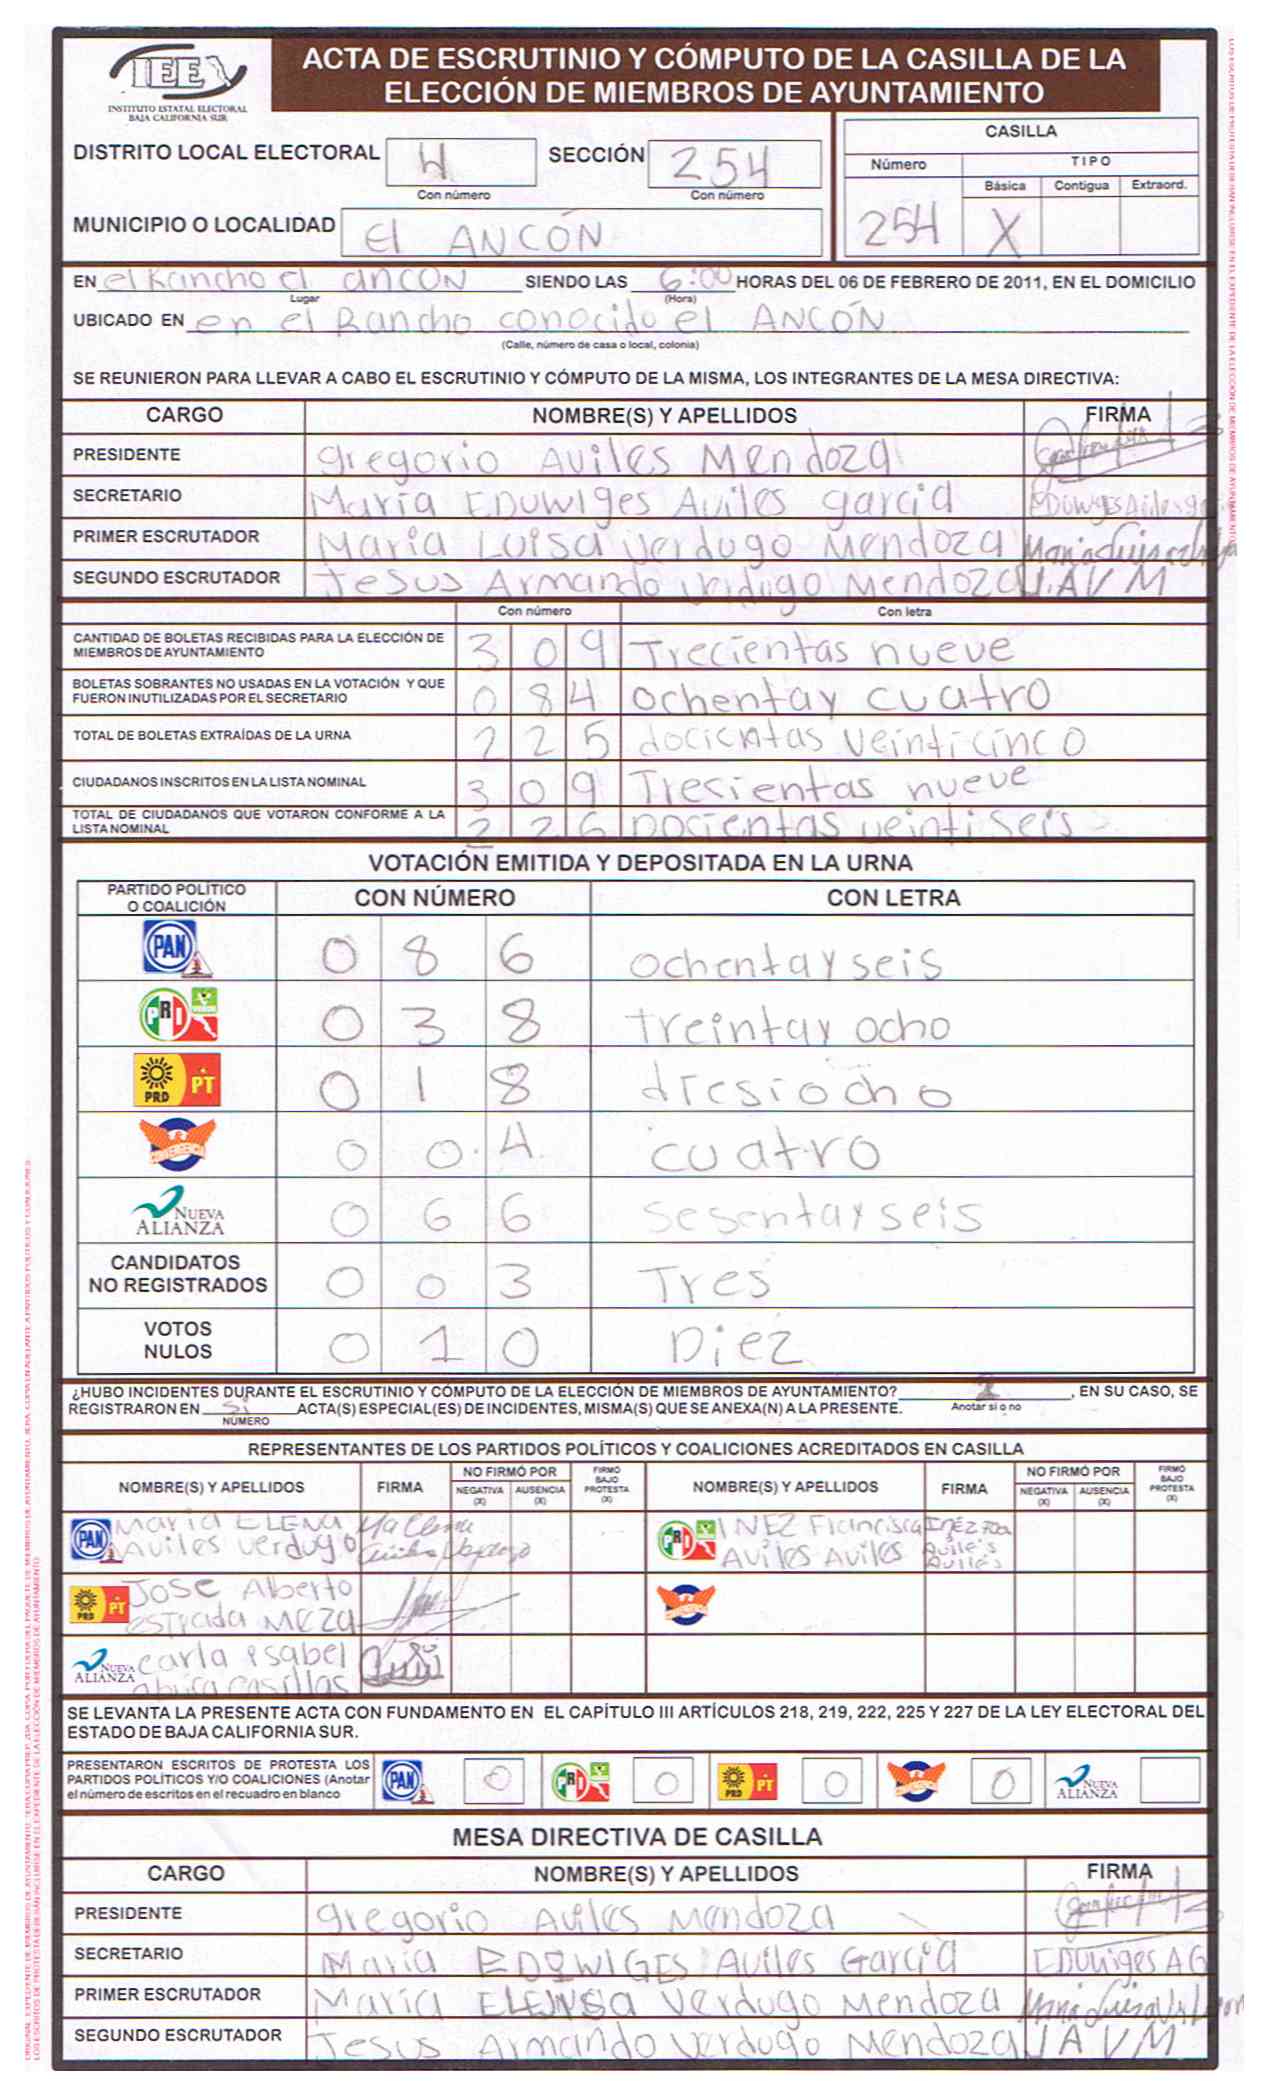 IEEX
INSTITUTO ESTATAL ELECTORAL
BAJA CALIFORNIA SUR
ACTA DE ESCRUTINIO Y CÓMPUTO DE LA CASILLA DE LA
ELECCIÓN DE MIEMBROS DE AYUNTAMIENTO
DISTRITO LOCAL ELECTORAL 4 SECCIÓN 254
Con número Con número
MUNICIPIO O LOCALIDAD El ANCÓN
CASILLA
Número TIPO
Básica Contigua Extraord.
254 X
EN el Rancho el ANCON SIENDO LAS 6:00 HORAS DEL 06 DE FEBRERO DE 2011, EN EL DOMICILIO
Lugar (Hora)
UBICADO EN en el Rancho conocido el ANCÓN
(Calle, número de casa o local, colonia)
SE REUNIERON PARA LLEVAR A CABO EL ESCRUTINIO Y CÓMPUTO DE LA MISMA, LOS INTEGRANTES DE LA MESA DIRECTIVA:
CARGO NOMBRE(S) Y APELLIDOS FIRMA
PRESIDENTE gregorio Aviles Mendoza
SECRETARIO María EDUWIGES Aviles garcia
PRIMER ESCRUTADOR Maria Luisa Verdugo Mendoza
SEGUNDO ESCRUTADOR Jesus Armando Verdugo Mendoza J.A.V M
Con número Con letra
CANTIDAD DE BOLETAS RECIBIDAS PARA LA ELECCIÓN DE
MIEMBROS DE AYUNTAMIENTO 3 0 9 Trecientas nueve
BOLETAS SOBRANTES NO USADAS EN LA VOTACIÓN Y QUE
FUERON INUTILIZADAS POR EL SECRETARIO 0 8 4 ochentay cuatro
TOTAL DE BOLETAS EXTRAÍDAS DE LA URNA 2 2 5 docientas veinticinco
CIUDADANOS INSCRITOS EN LA LISTA NOMINAL 3 0 9 Tresientas nueve
TOTAL DE CIUDADANOS QUE VOTARON CONFORME A LA
LISTA NOMINAL 2 2 6 Docientas veintiseis
VOTACIÓN EMITIDA Y DEPOSITADA EN LA URNA
PARTIDO POLÍTICO
O COALICIÓN CON NÚMERO CON LETRA
PAN 0 8 6 ochentayseis
PRI VERDE 0 3 8 treintay ocho
PRD PT 0 1 8 diesiocho
CONVERGENCIA 0 0 4 cuatro
NUEVA ALIANZA 0 6 6 sesentayseis
CANDIDATOS
NO REGISTRADOS 0 0 3 Tres
VOTOS
NULOS 0 1 0 Diez
¿HUBO INCIDENTES DURANTE EL ESCRUTINIO Y CÓMPUTO DE LA ELECCIÓN DE MIEMBROS DE AYUNTAMIENTO? 1, EN SU CASO, SE
REGISTRARON EN si ACTA(S) ESPECIAL(ES) DE INCIDENTES, MISMA(S) QUE SE ANEXA(N) A LA PRESENTE. Anotar si o no
NÚMERO
REPRESENTANTES DE LOS PARTIDOS POLÍTICOS Y COALICIONES ACREDITADOS EN CASILLA
NOMBRE(S) Y APELLIDOS FIRMA NO FIRMÓ POR NEGATIVA (X) AUSENCIA (X) FIRMÓ BAJO PROTESTA (X) NOMBRE(S) Y APELLIDOS FIRMA NO FIRMÓ POR NEGATIVA (X) AUSENCIA (X) FIRMÓ BAJO PROTESTA (X)
PAN María ELENA PRI INEZ Francisca
Aviles verdugo AVILES AVILES
PRD PT JOSE Alberto
estrada MEZA
NUEVA ALIANZA carla Ysabel
casillas
SE LEVANTA LA PRESENTE ACTA CON FUNDAMENTO EN EL CAPÍTULO III ARTÍCULOS 218, 219, 222, 225 Y 227 DE LA LEY ELECTORAL DEL
ESTADO DE BAJA CALIFORNIA SUR.
PRESENTARON ESCRITOS DE PROTESTA LOS
PARTIDOS POLÍTICOS Y/O COALICIONES (Anotar
el número de escritos en el recuadro en blanco
PAN 0 PRI 0 PRD PT 0 CONVERGENCIA 0 NUEVA ALIANZA
MESA DIRECTIVA DE CASILLA
CARGO NOMBRE(S) Y APELLIDOS FIRMA
PRESIDENTE gregorio Aviles Mendoza
SECRETARIO María EDUWIGES Aviles Garcia EDUwiges AG
PRIMER ESCRUTADOR María Verdugo Mendoza
SEGUNDO ESCRUTADOR Jesus Armando Verdugo Mendoza J A V M